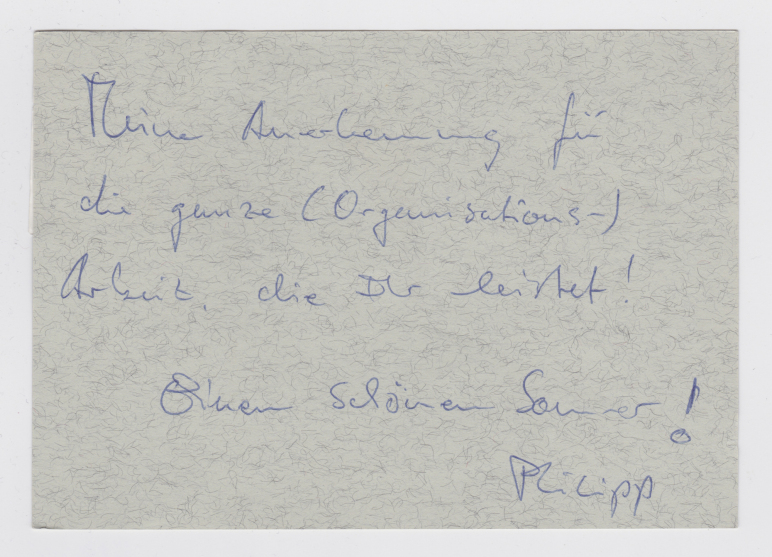 Meine Anerkennung für
die ganze (Organisations-)
Arbeit, die Ihr leistet!
Einen schönen Sommer!
Philipp